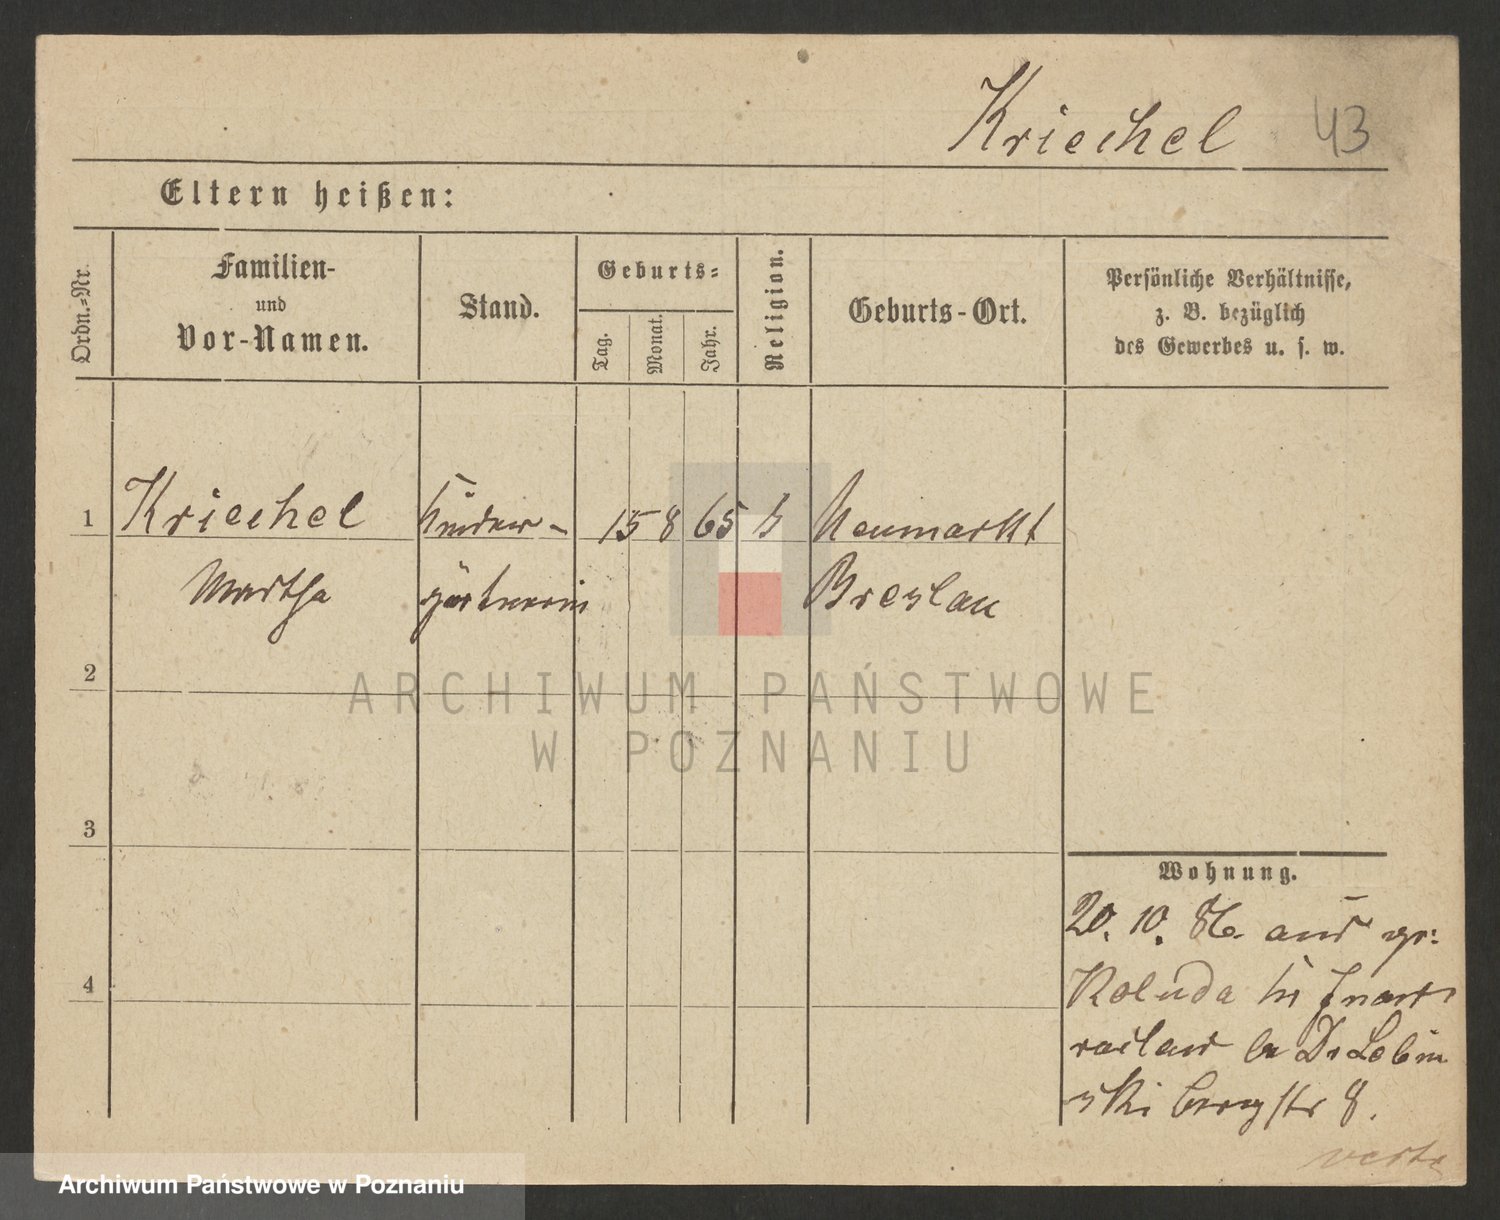 Kriechel 43
Eltern heißen:
Ordn.-Nr.
Familien-
und
Vor-Namen.
Stand.
Geburts-
Tag.
Monat.
Jahr.
Religion.
Geburts-Ort.
Persönliche Verhältnisse,
z. B. bezüglich
des Gewerbes u. s. w.
1 Kriechel Kinder- 15 8 65 Neumarkt
Martha gärtnerin Breslau
2
ARCHIWUM PAŃSTWOWE
W POZNANIU
3
Wohnung.
20. 10. 86. aus gr:
4
Koluda Inow
raclaw Dr Lebin
ski Bergstr 8.
verte
Archiwum Państwowe w Poznaniu